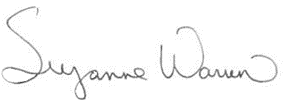 Suzanne Warren